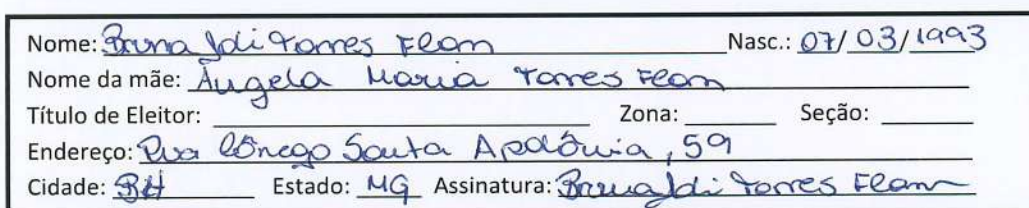 Nome: Bruna Jdi Torres Flam Nasc.: 07/03/1993
Nome da mãe: Ângela Maria Torres Flam
Título de Eleitor: Zona: Seção:
Endereço: Rua Cônego Santa Apolônia, 59
Cidade: BH Estado: MG Assinatura: Bruna Jdi Torres Flam